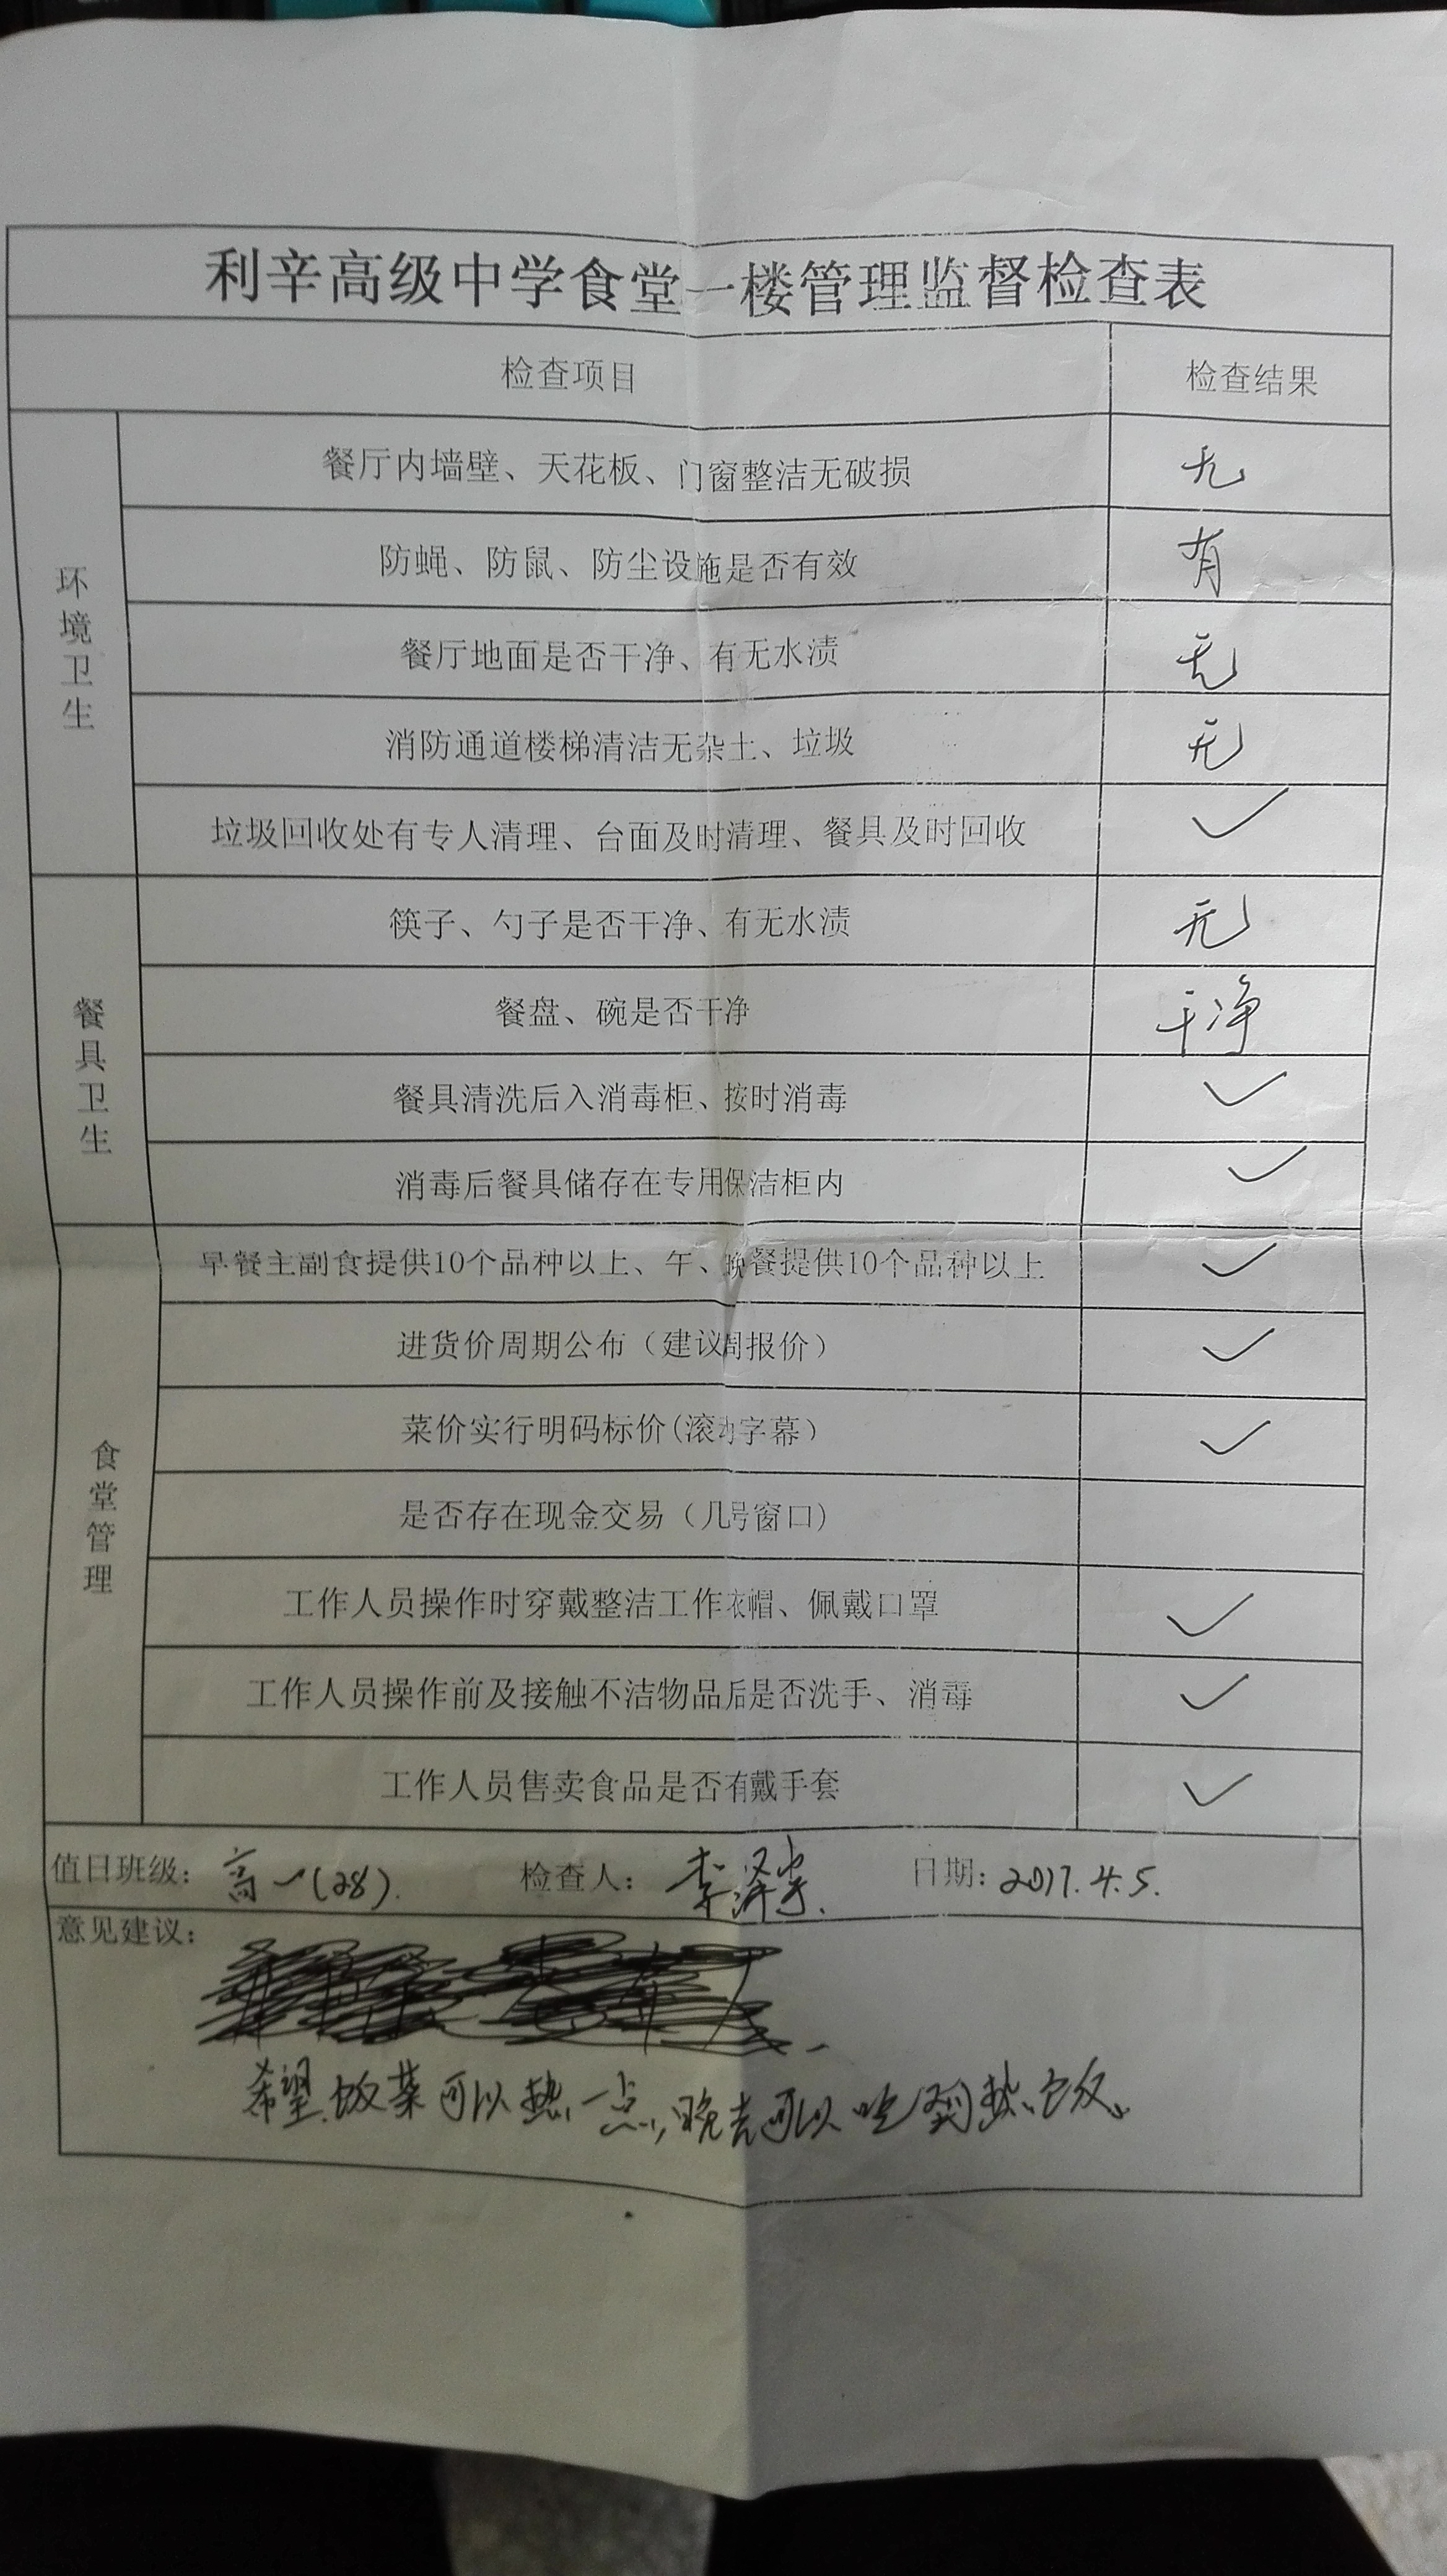 利辛高级中学食堂一楼管理监督检查表
检查项目 检查结果
环境卫生
餐厅内墙壁、天花板、门窗整洁无破损 无
防蝇、防鼠、防尘设施是否有效 有
餐厅地面是否干净、有无水渍 无
消防通道楼梯清洁无杂土、垃圾 无
垃圾回收处有专人清理、台面及时清理、餐具及时回收 ✓
餐具卫生
筷子、勺子是否干净、有无水渍 无
餐盘、碗是否干净 干净
餐具清洗后入消毒柜、按时消毒 ✓
消毒后餐具储存在专用保洁柜内 ✓
食堂管理
早餐主副食提供10个品种以上、午、晚餐提供10个品种以上 ✓
进货价周期公布（建议周报价） ✓
菜价实行明码标价(滚动字幕） ✓
是否存在现金交易（几号窗口）
工作人员操作时穿戴整洁工作衣帽、佩戴口罩 ✓
工作人员操作前及接触不洁物品后是否洗手、消毒 ✓
工作人员售卖食品是否有戴手套 ✓
值日班级：高一(28). 检查人：李泽 日期：2017.4.5.
意见建议：
希望饭菜可以热一点,晚去可以吃到热饭。